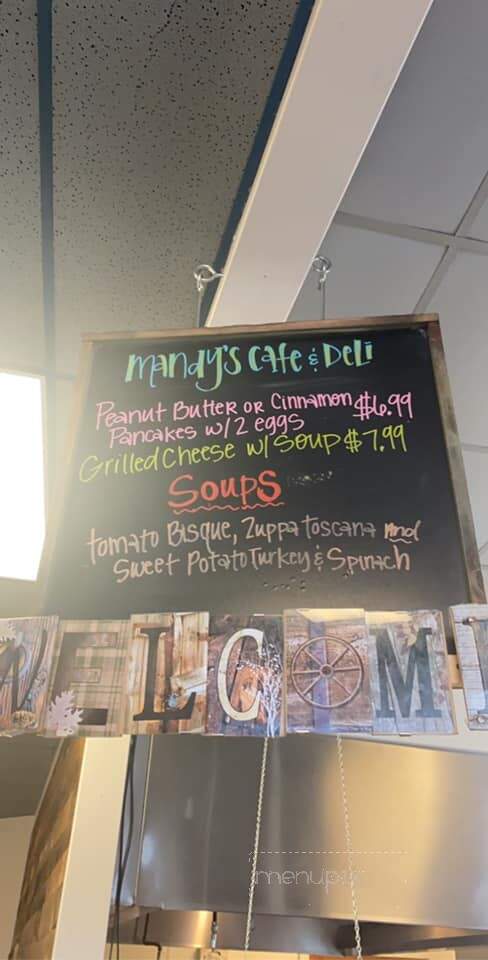 mandy's Cafe & Deli
Peanut Butter or Cinnamon $6.99
Pancakes w/ 2 eggs
Grilled Cheese w/ Soup $7.99
Soups
tomato Bisque, Zuppa Toscana and
Sweet Potato Turkey & Spinach
WELCOM
menupix